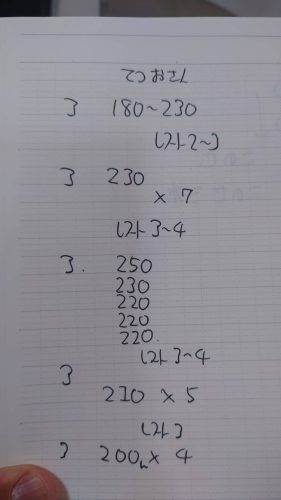 3 180~230
レスト2~3
3 230
× 7
レスト3~4
3. 250
230
220
220
220.
レスト3~4
3
210 × 5
レスト3
3 200 × 4